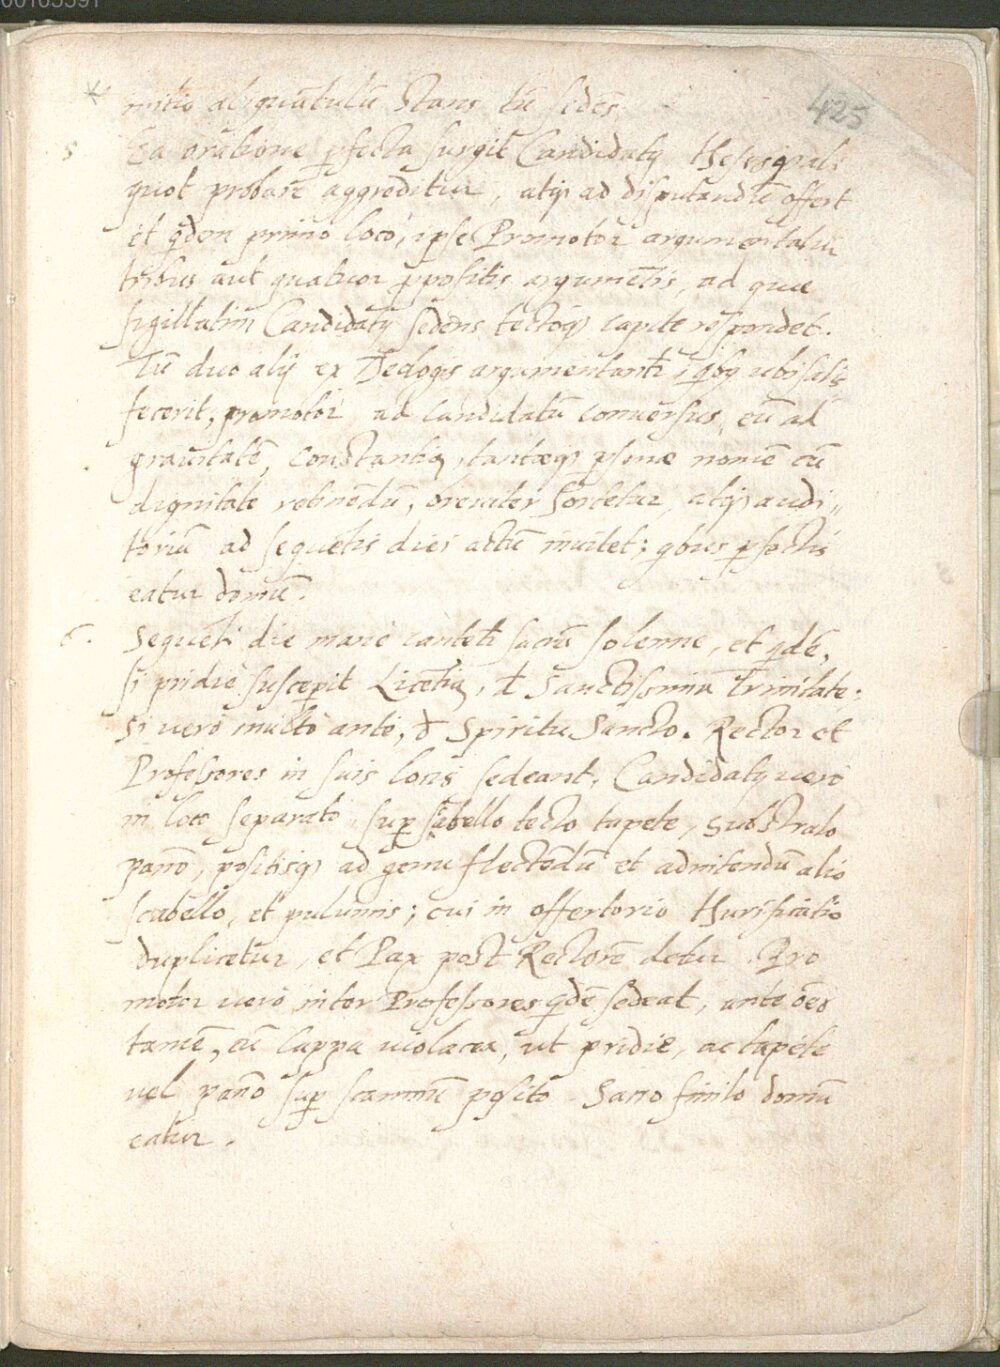 00105591
425
* initio aliquātulū stans tū sedēs
5 Ea oratione pfecta surgit Candidatꝯ Thesesq3 ali
quot probare aggreditur, atq3 ad disputandū offert
et qdem primo loco, ipse Promotor argumentatur
tribus aut quatuor ppositis argumētis, ad quae
sigillatim Candidatꝯ sedens tectoq3 capite respondet.
Tū duo alij ex Theologis argumentantr̄ qbꝯ ubi satis
fecerit, promotor ad candidatū conuersus, eū ad
grauitatē, constantiā, tantaeq3 psonae nomē cū
dignitate retinēdū, breuiter hortetur, atq3 audi„
toriū ad sequētis diei actū inuitet; qbus pfectis
eatur domū.
6. Sequēti die mane cantetr̄ sacrū solenne, et qdē,
si pridie susceperit Licētiā, d Sanctissima Trinitate.
si vero multo ante, d Spiritu Sancto. Rector et
Professores in suis locis sedeant. Candidatꝯ vero
in loco separato sup scabello tecto tapete, substrato
panō, positisq3 ad genu flectēdū et adnitendū alio
scabello, et puluinis; cui in offertorio thurificatio
duplicetur, et Pax post Rectorē detur. Pro
motor vero inter Professores qdē sedeat, ante oēs
tamē, cū cappa uiolacea, ut pridie, ac tapete
vel panō sup scamnū posito. Sacro finito domū
eatur.